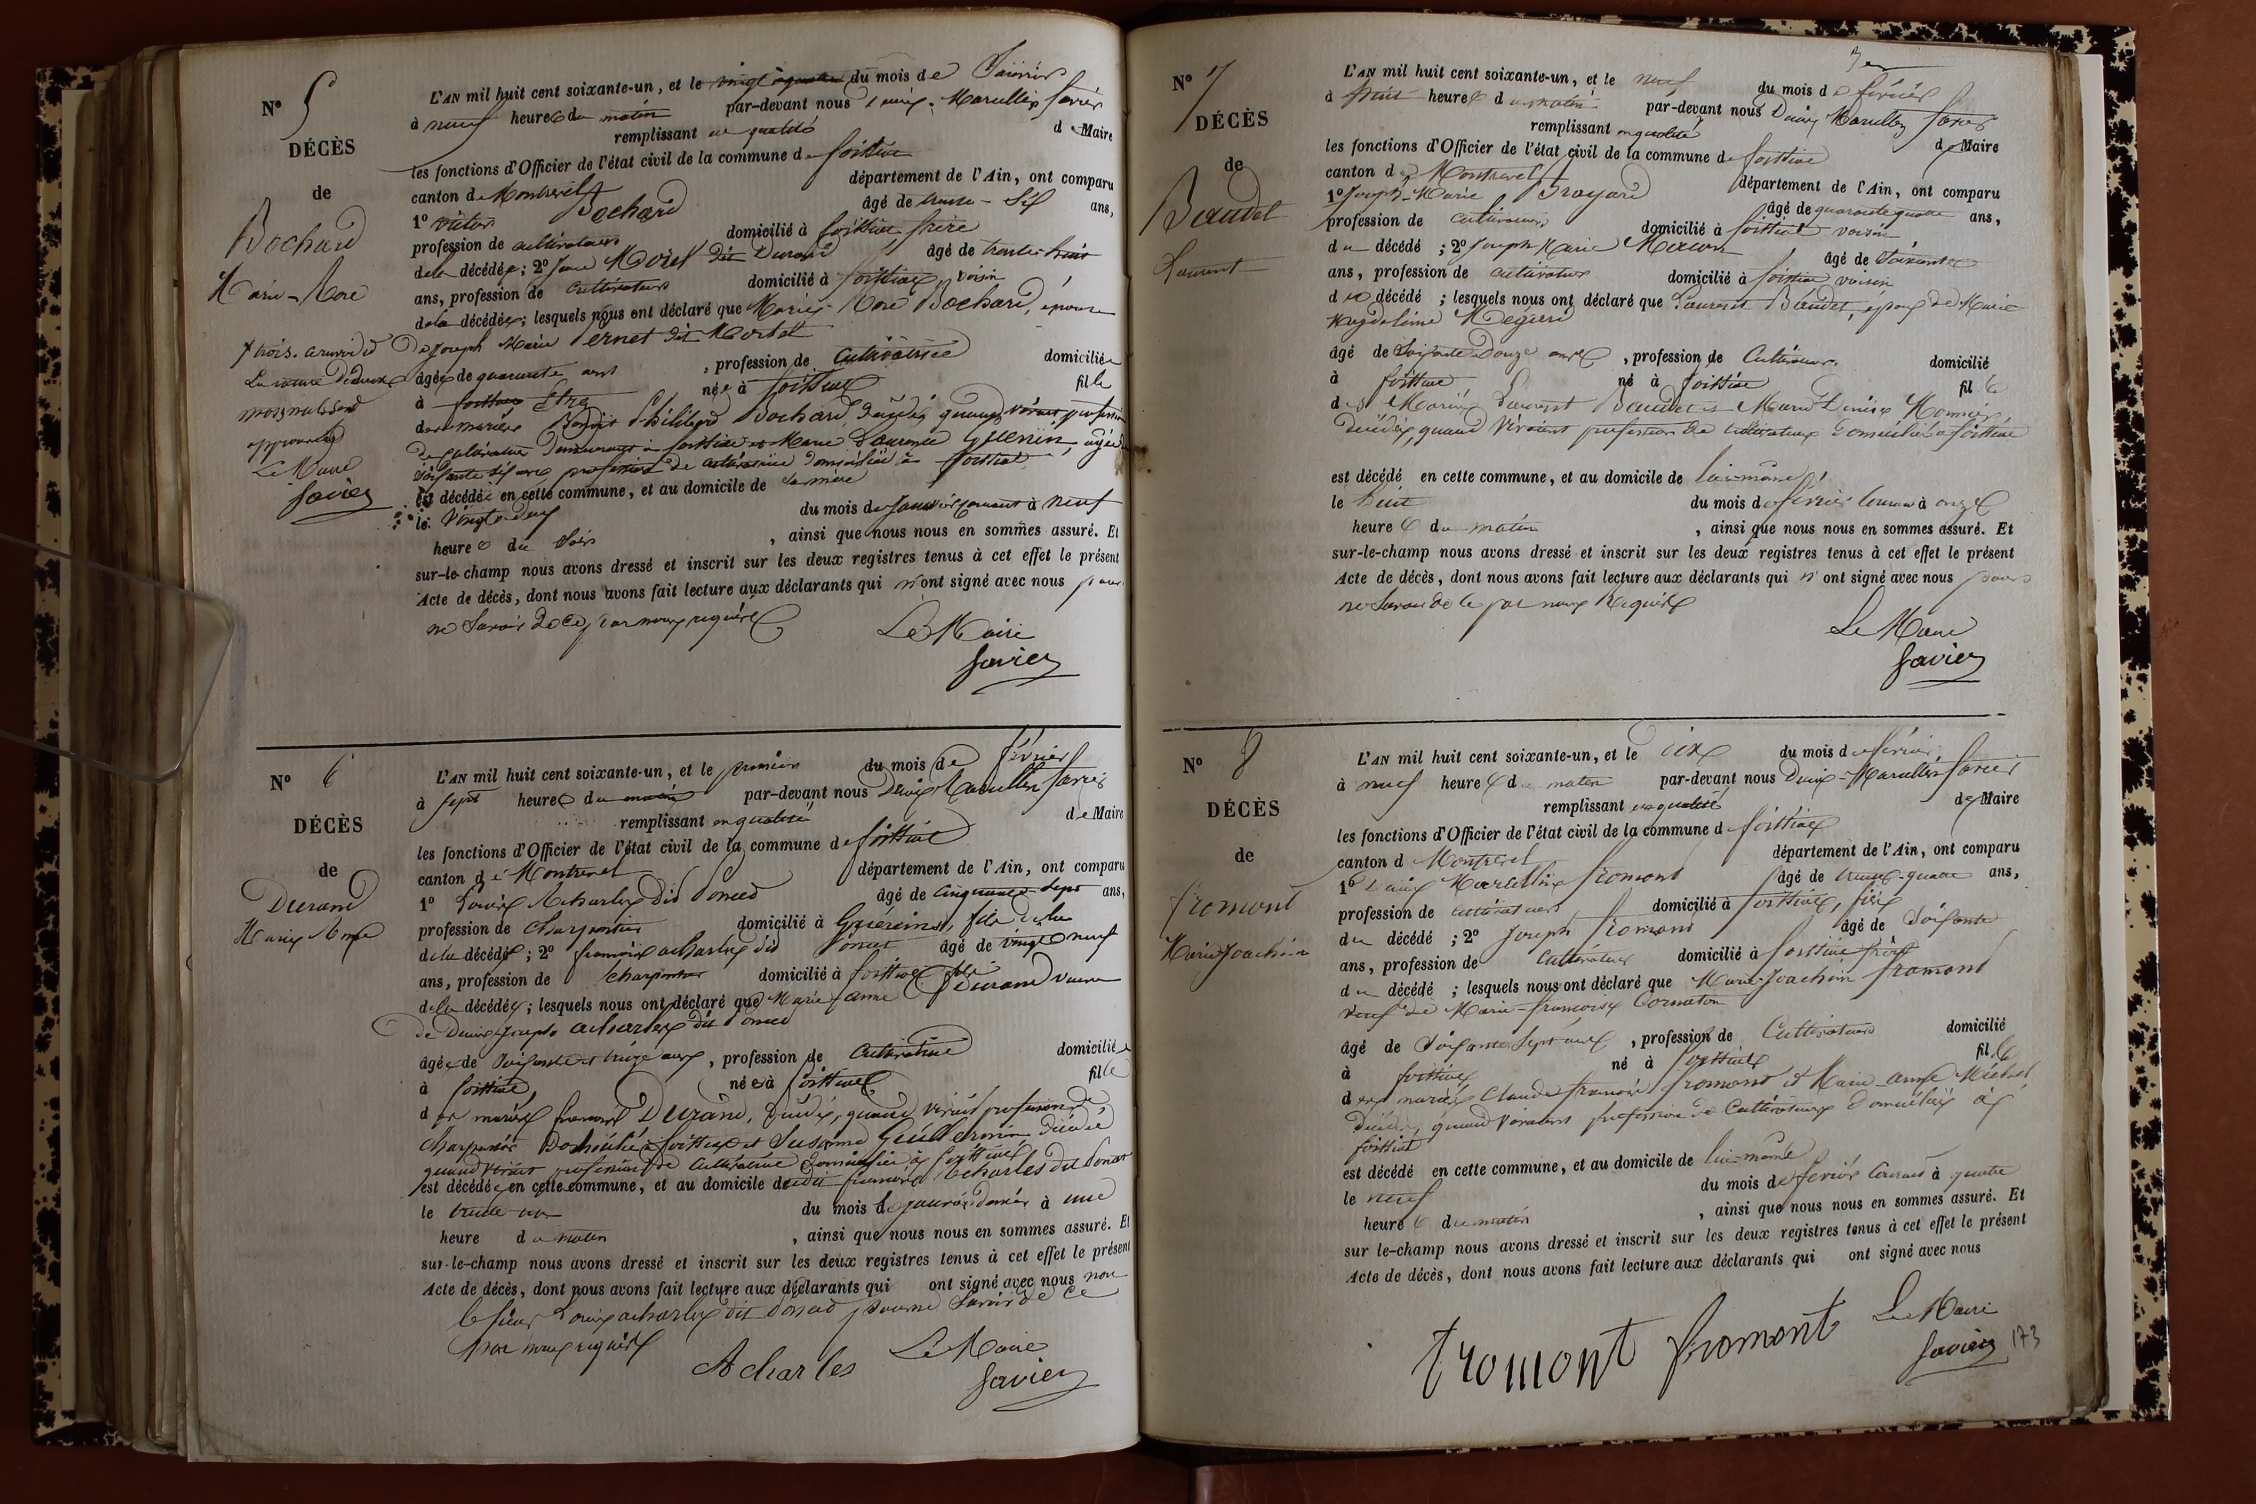 N° 5
DÉCÈS
de
Bochard
Marie-Rose
L'AN mil huit cent soixante-un, et le vingt quatre du mois de Janvier
à neuf heures du matin par-devant nous Denis-Marcellin favier
remplissant en qualité de Maire
les fonctions d'Officier de l'état civil de la commune de foissiat
canton de Montrevel département de l'Ain, ont comparu
1° victor Bochard âgé de trente-six ans,
profession de cultivateur domicilié à foissiat frère
de la décédée; 2° Morel dit Durand âgé de trente-huit
ans, profession de cultivateur domicilié à foissiat voisin
de la décédée; lesquels nous ont déclaré que Marie-Rose Bochard, épouse
De joseph Marie Pernet dit
âgée de quarante ans, profession de Cultivatrice domiciliée
à Etrez née à foissiat fille
des mariés Philibert Bochard, décédé, quand vivait profession
de cultivateur demeurant à foissiat et Marie Laurence Guenin, âgée de
soixante six ans profession de cultivatrice domiciliée à foissiat
est décédée en cette commune, et au domicile de sa mère
le vingt-deux du mois de janvier courant à neuf
heures du soir, ainsi que nous nous en sommes assuré. Et
sur-le-champ nous avons dressé et inscrit sur les deux registres tenus à cet effet le présent
Acte de décès, dont nous avons fait lecture aux déclarants qui n'ont signé avec nous pour
ne savoir de ce par nous requis
Le Maire
favier
approuvés
Le Maire
favier
N° 6
DÉCÈS
de
Durand
Marie Anne
L'AN mil huit cent soixante-un, et le premier du mois de février
à sept heures du matin par-devant nous Denis Marcellin favier
remplissant en qualité de Maire
les fonctions d'Officier de l'état civil de la commune de foissiat
canton de Montrevel département de l'Ain, ont comparu
1° Louis Acharles dit Donud âgé de cinquante-sept ans,
profession de Charpentier domicilié à fils de la
de la décédée; 2° françois acharles dit Donud âgé de vingt neuf
ans, profession de charpentier domicilié à foissiat fils
de la décédée; lesquels nous ont déclaré que Marie anne Durand veuve
de Denis joseph acharles dit Donud
âgée de soixante et treize ans, profession de Cultivatrice domiciliée
à foissiat née à foissiat fille
des mariés Durand, décédé, quand vivait profession de
charpentier Domicilié à foissiat et Susanne Guillermin décédée
quand vivait profession de Cultivatrice domiciliée à foissiat
est décédée en cette commune, et au domicile dudit françois acharles dit Donud
le trente-un du mois de janvier dernier à une
heure du matin, ainsi que nous nous en sommes assuré. Et
sur-le-champ nous avons dressé et inscrit sur les deux registres tenus à cet effet le présent
Acte de décès, dont nous avons fait lecture aux déclarants qui ont signé avec nous non
le sieur Louis acharles dit Donud pour ne savoir de ce
par nous requis
Acharles
Le Maire
favier
N° 7
DÉCÈS
de
Beaudet
Laurent
L'AN mil huit cent soixante-un, et le neuf du mois de février
à huit heures du matin par-devant nous Denis Marcellin favier
remplissant en qualité de Maire
les fonctions d'Officier de l'état civil de la commune de foissiat
canton de Montrevel département de l'Ain, ont comparu
1° Joseph-Marie Brayard âgé de quarante quatre ans,
profession de cultivateur domicilié à foissiat voisin
du décédé; 2° Joseph Marie âgé de soixante
ans, profession de cultivateur domicilié à foissiat voisin
du décédé; lesquels nous ont déclaré que Laurent Beaudet, époux de Marie
Magdeleine
âgé de soixante-Douze ans, profession de Cultivateur domicilié
à foissiat né à foissiat fils
des Mariés Laurent Beaudet et Marie Denise Monnier,
décédés, quand vivaient profession de cultivateurs domiciliés à foissiat
est décédé en cette commune, et au domicile de lui-même
le huit du mois de février courant à onze
heures du matin, ainsi que nous nous en sommes assuré. Et
sur-le-champ nous avons dressé et inscrit sur les deux registres tenus à cet effet le présent
Acte de décès, dont nous avons fait lecture aux déclarants qui n'ont signé avec nous pour
ne savoir de ce par nous Requis
Le Maire
favier
N° 8
DÉCÈS
de
fromont
Marie Joachim
L'AN mil huit cent soixante-un, et le dix du mois de février
à neuf heures du matin par-devant nous Denis-Marcellin favier
remplissant en qualité de Maire
les fonctions d'Officier de l'état civil de la commune de foissiat
canton de Montrevel département de l'Ain, ont comparu
1° Denis Marcellin fromont âgé de trente-quatre ans,
profession de cultivateur domicilié à foissiat, fils
du décédé; 2° Joseph fromont âgé de soixante
ans, profession de Cultivateur domicilié à foissiat frère
du décédé; lesquels nous ont déclaré que Marie-Joachim fromont
veuf de Marie-françoise Cornaton
âgé de soixante sept ans, profession de Cultivateur domicilié
à foissiat né à foissiat fils
des mariés Claude françois fromont et Marie-anne Michel
décédés, quand vivaient profession de Cultivateurs domiciliés à
foissiat
est décédé en cette commune, et au domicile de lui-même
le neuf du mois de février courant à quatre
heures du matin, ainsi que nous nous en sommes assuré. Et
sur le-champ nous avons dressé et inscrit sur les deux registres tenus à cet effet le présent
Acte de décès, dont nous avons fait lecture aux déclarants qui ont signé avec nous
fromont fromont
Le Maire
favier
173